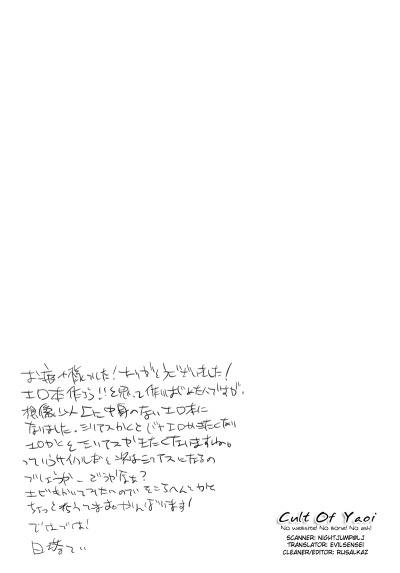 お疲れ様でした!ありがとうございました!
エロ本作ろう!!と思って作りはじめたんですが、
想像以上に中身のないエロ本に
なりました。シリアスかくとじゃエロが出たくなり
エロかくとシリアスがまたくなりますよね。
っていうサイクルだと次はシリアスになるの
でしょうか…どうかなぁ?
エビもかいてみたいのでそこらへんとかも
ちょっと考えつつまたがんばります!
ではでは!
Cult Of Yaoi
No website! No scene! No ash!
SCANNER: NIGHTJUMP@LJ
TRANSLATOR: EVILSENSEI
CLEANER/EDITOR: RUSALKAZ